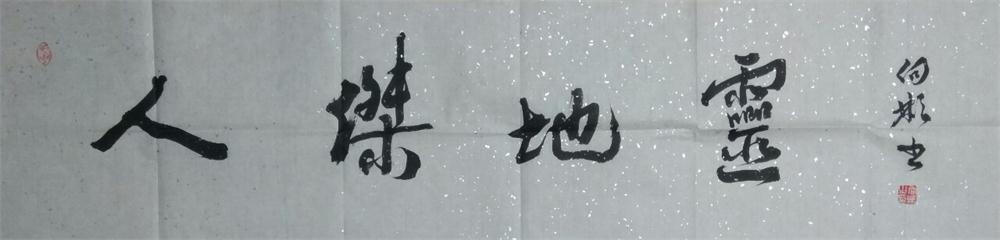 人傑地靈
向彬书